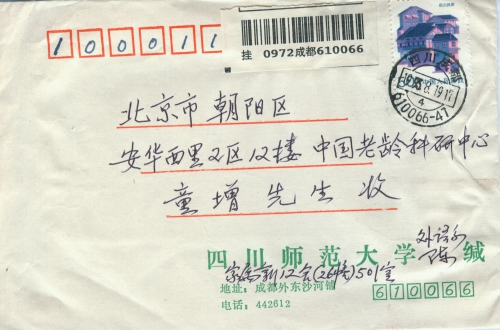 100011
挂 0972成都610066
四川成都
610066-47
北京市朝阳区
安华西里2区12楼中国老龄科研中心
童增先生收
四川师范大学 缄
外语系
家属新12舍(26幢)501室
地址:成都外东沙河铺
电话:442612
610066